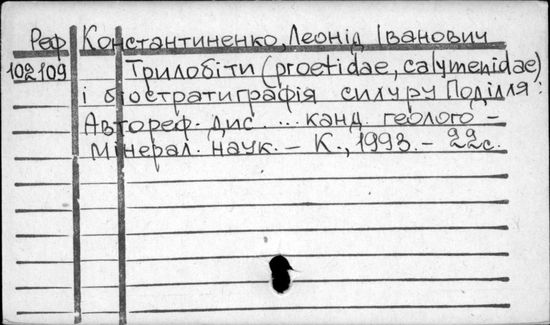 Реф Константиненко, Леонід Іванович
102109 Трилобіти (proetidae, calymenidae)
і біостратиграфія силуру Поділля:
Автореф. дис. ... канд. геолого-
мінерал. наук. - К., 1993. - 22с.